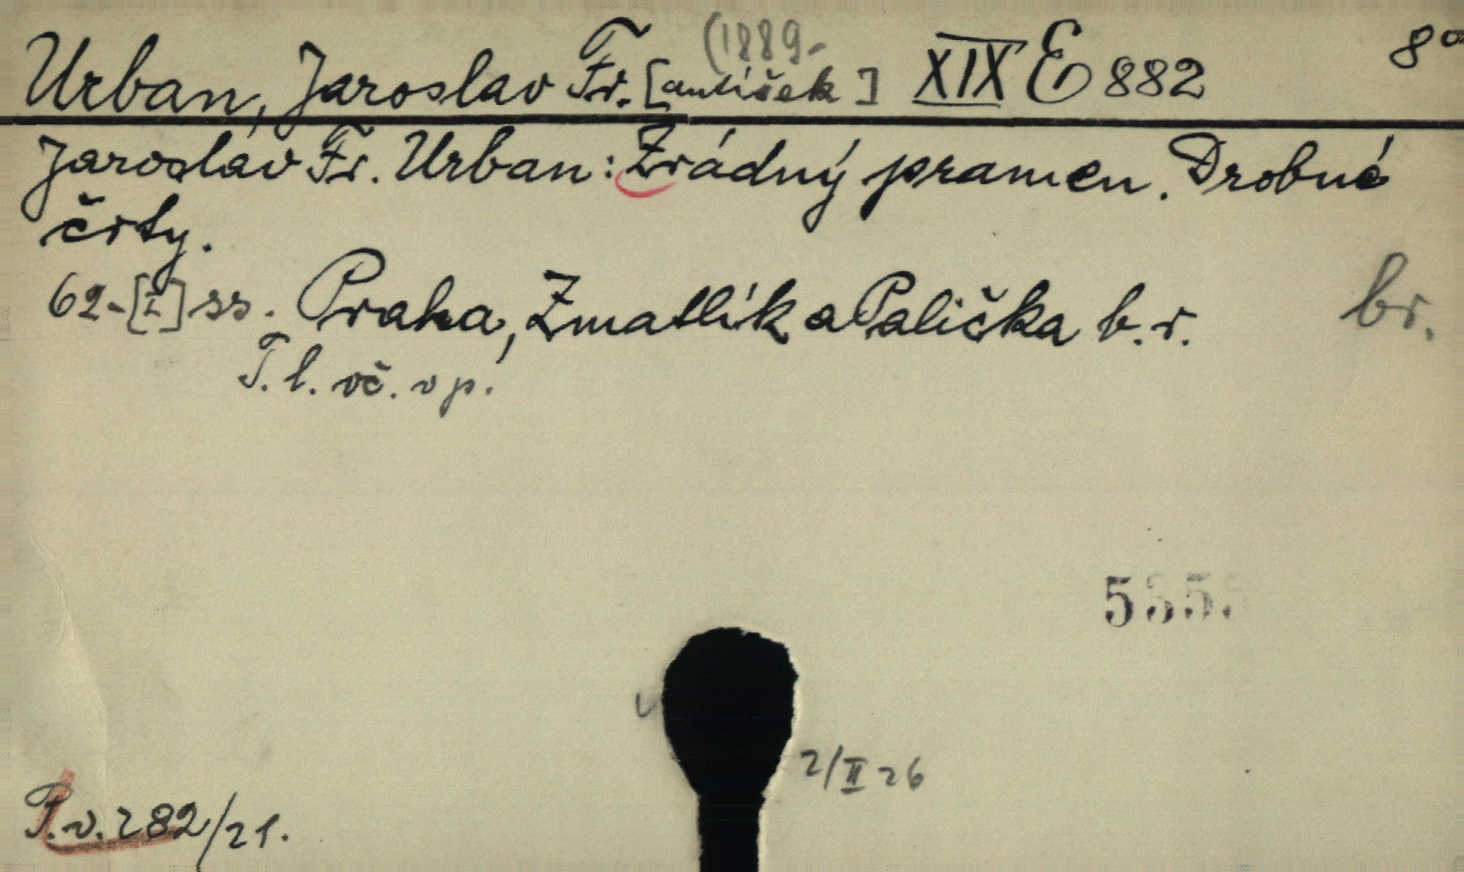 (1889-
Urban, Jaroslav Fr. [antišek] XIX E 882 8°
Jaroslav Fr. Urban: Zrádný pramen. Drobné
črty.
62-[I] ss. Praha, Zmatlík a Palička b. r. br.
T. l. vč. v p.
2/II 26
P. v. 282/21.